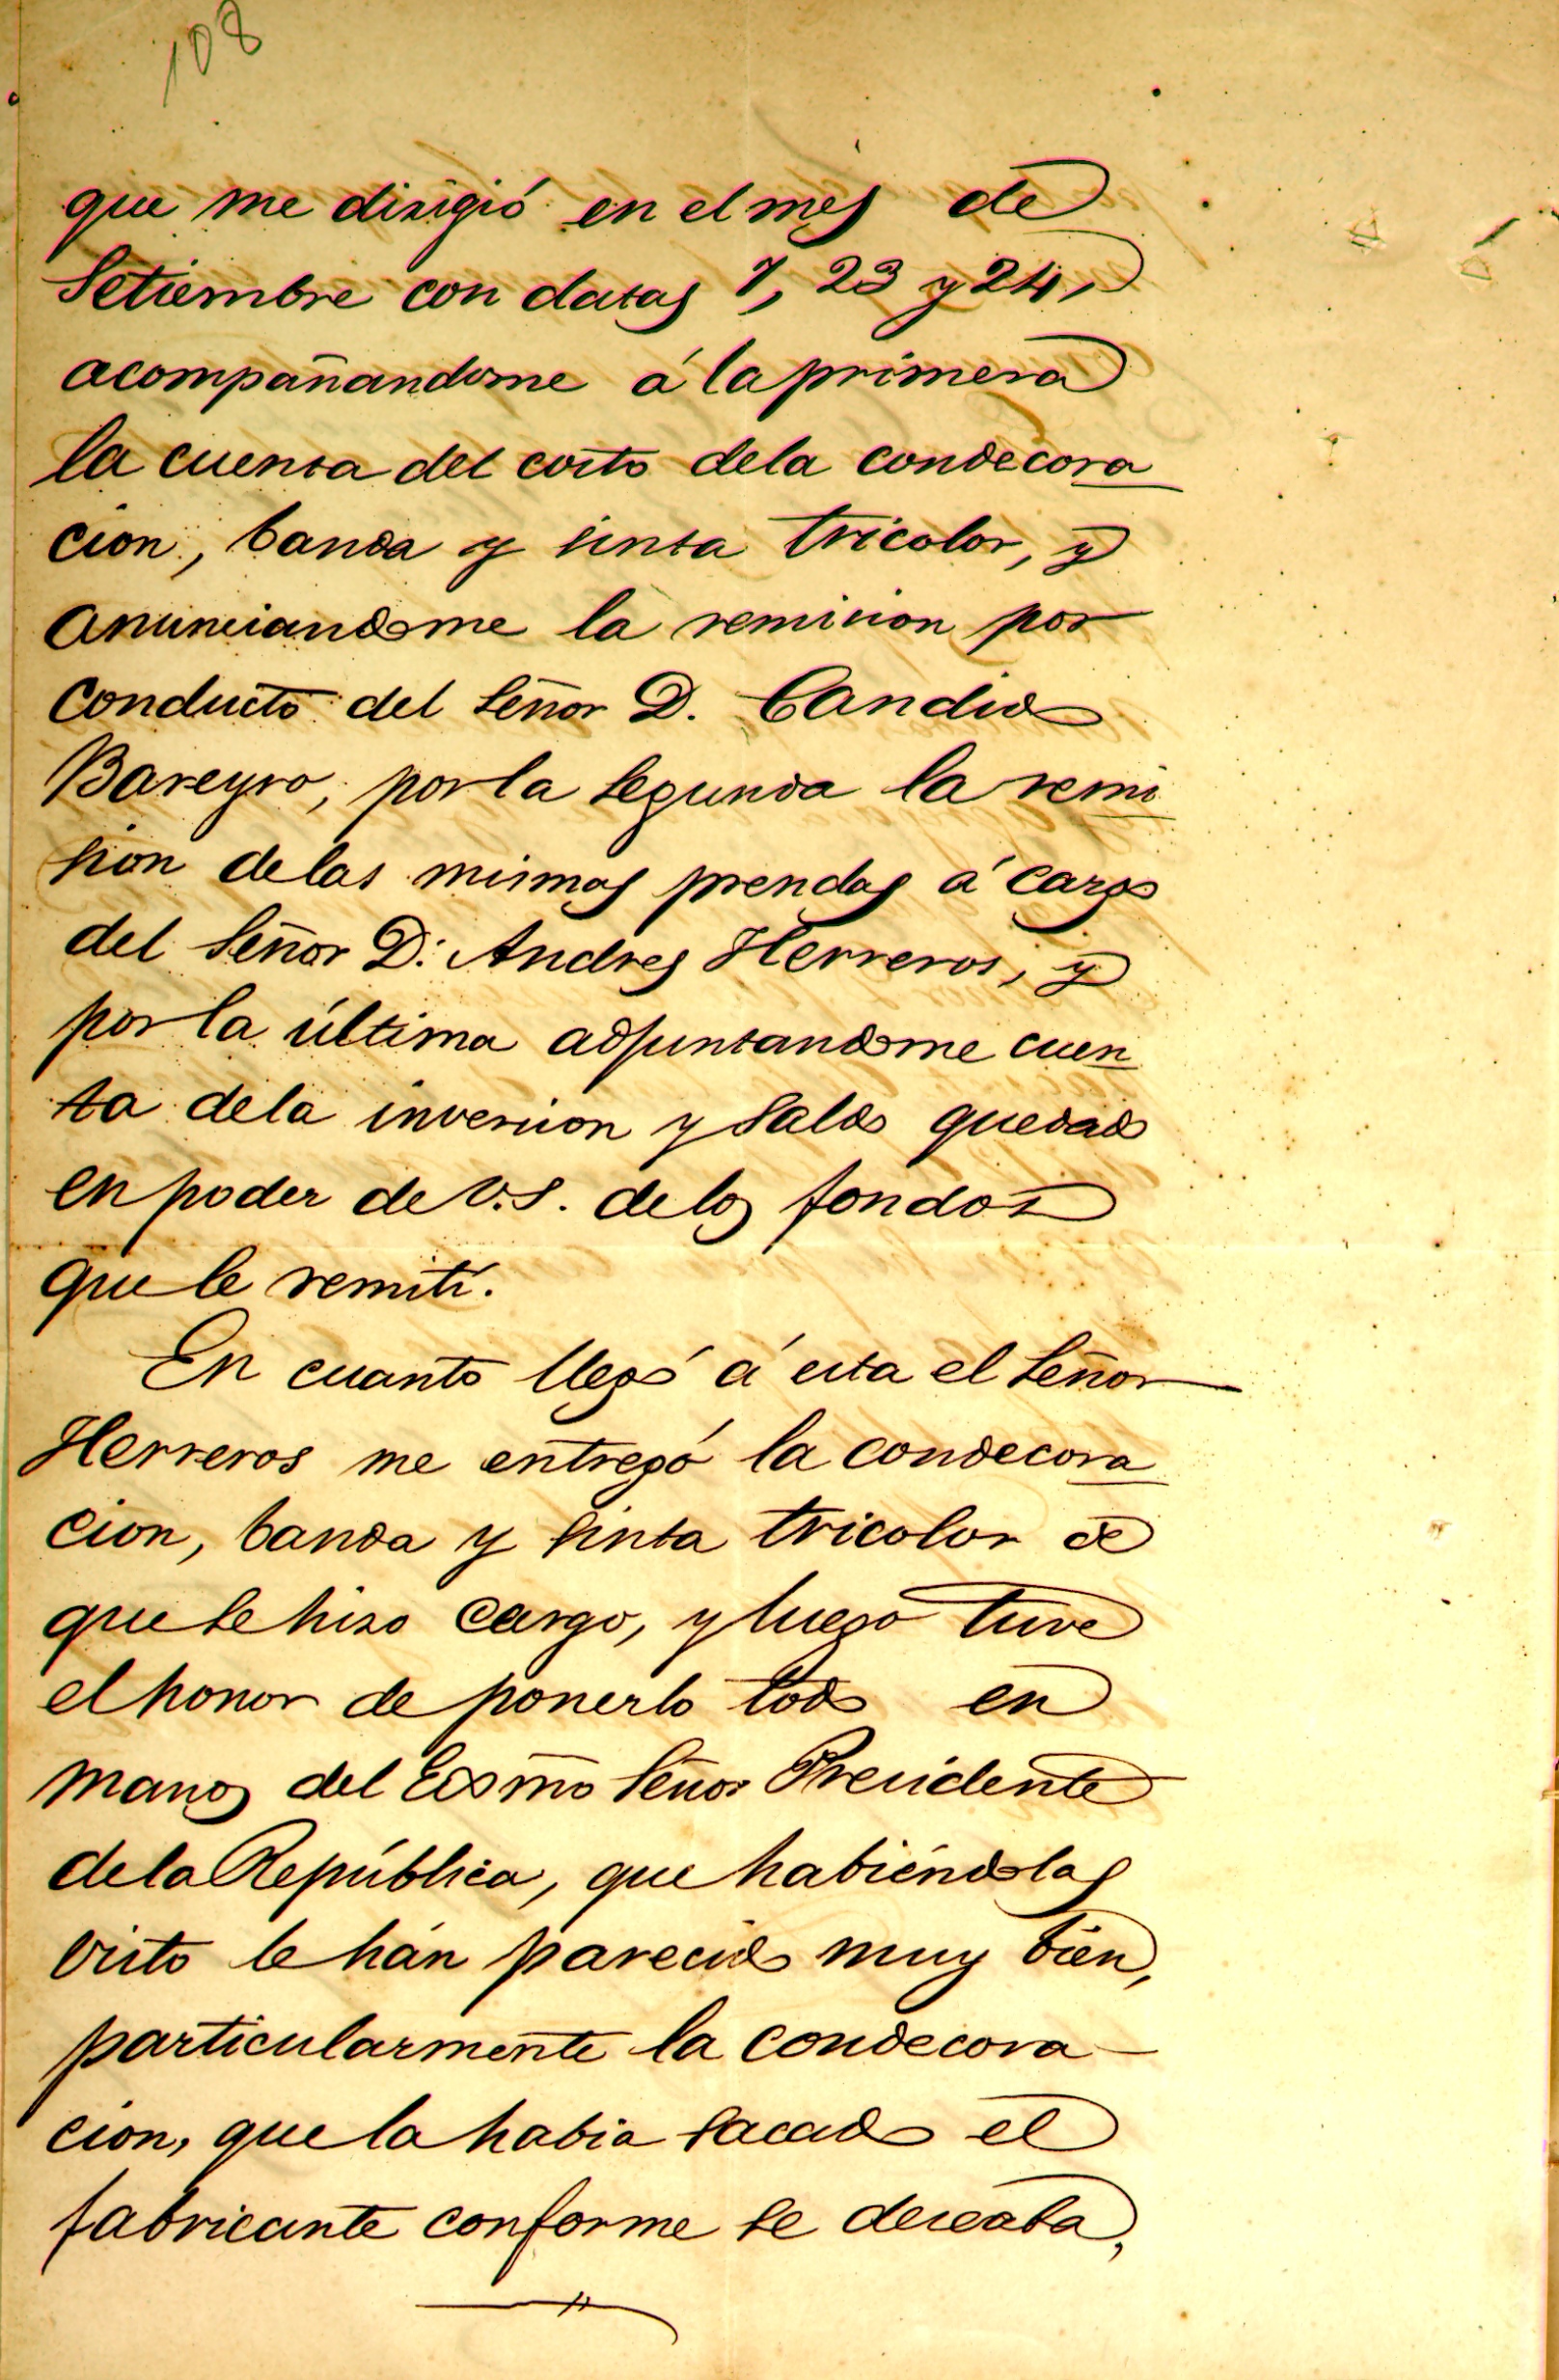 108
que me dirigió en el mes de
Setiembre con datas 7, 23 y 24,
acompañandome á la primera
la cuenta del costo dela condecora
cion, banda y sinta tricolor, y
anunciandome la remision por
conducto del Señor D. Candido
Bareyro, por la segunda la remi
sion delas mismas prendas á cargo
del Señor D. Andres Herreros, y
por la última adjuntandome cuen
ta dela inversion y saldo quedado
en poder de V.S. delos fondos
que le remití.
En cuanto llegó á esta el Señor
Herreros me entregó la condecora
cion, banda y sinta tricolor de
que se hizo cargo, y luego tuve
el honor de ponerlo todo en
manos del Exsmo Señor Presidente
dela República, que habiéndolas
visto le hán parecido muy bien,
particularmente la condecora-
cion, que la habia sacado el
fabricante conforme se deseaba,